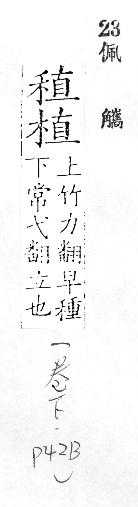 23
佩觿
稙植
上竹力翻早種
下常弋翻立也
(卷下·
P42B)